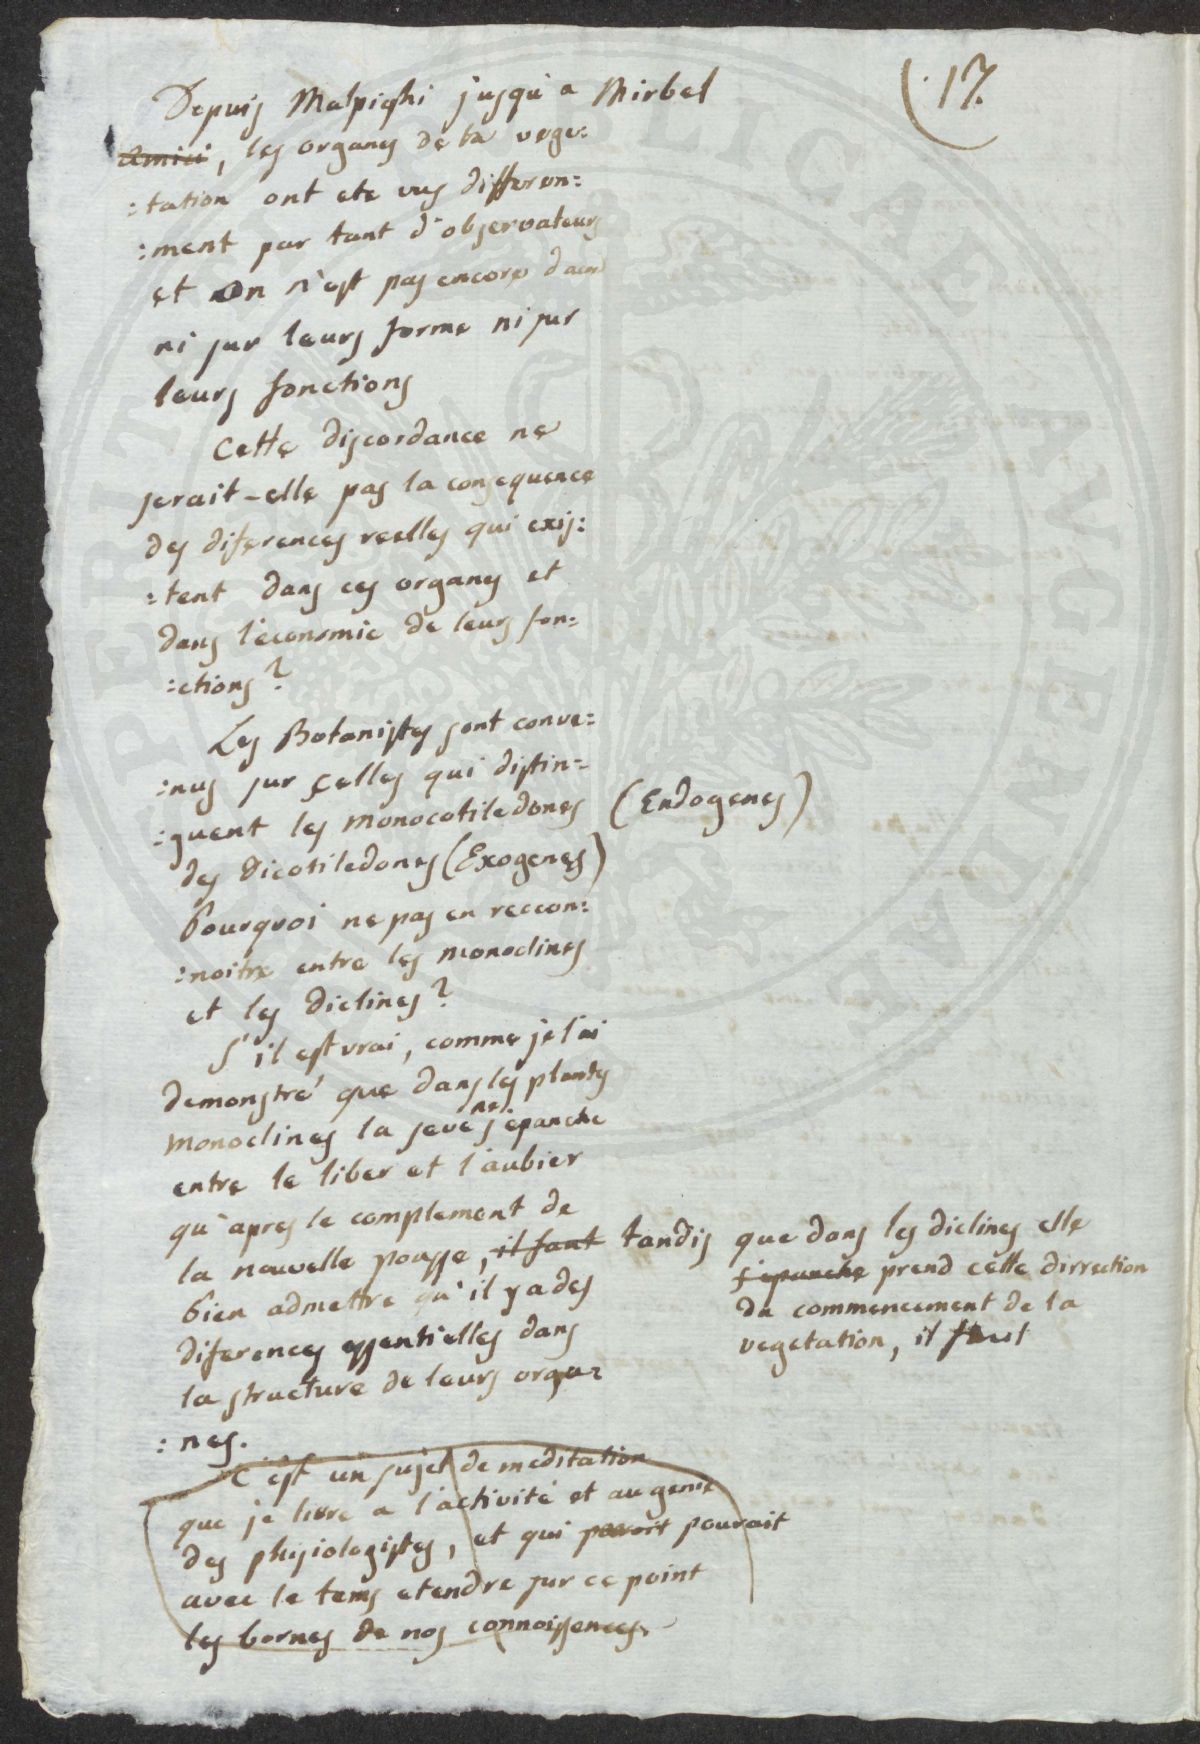 (17.
Depuis Malpighi jusqu'a Mirbel
Amici, les organes de la vege:
:tation ont ete vus differen:
:ment par tant d'observateurs
et on n'est pas encore d'acord
ni sur leurs forme ni sur
leurs fonctions
Cette discordance ne
serait-elle pas la consequence
des diferences reelles qui exis:
:tent dans ces organes et
dans l'economie de leurs fon:
:ctions?
Les Botanistes sont conve:
:nus sur celles qui distin:
:guent les monocotiledones (Endogenes)
des Dicotiledones (Exogenes)
Pourquoi ne pas en reccon:
:noitre entre les monoclines
et les diclines?
S'il est vrai, comme je l'ai
demonstré que dans les plantes
monoclines la seve ne s'epanche
entre le liber et l'aubier
qu'apres le complement de
la nouvelle pousse, il faut tandis que dans les diclines elle
s'epanche prend cette dirrection
du commencement de la
vegetation, il faut
bien admettre qu'il y a des
diferences essentielles dans
la structure de leurs orga:
:nes.
C'est un sujet de meditation
que je livre a l'activité et au genie
des physiologistes, et qui pouroit pourait
avec le tems etendre sur ce point
les bornes de nos connoissences.